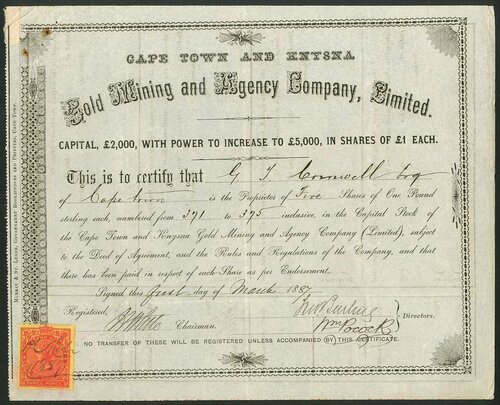 CAPE TOWN AND KNYSNA
Gold Mining and Agency Company, Limited.
CAPITAL, £2,000, WITH POWER TO INCREASE TO £5,000, IN SHARES OF £1 EACH.
This is to certify that G T Cornwell Esq
of Cape town is the Proprietor of Five Shares of One Pound
sterling each, numbered from 371 to 375 inclusive, in the Capital Stock of
the Cape Town and Knysna Gold Mining and Agency Company (Limited), subject
to the Deed of Agreement, and the Rules and Regulations of the Company, and that
there has been paid in respect of each Share as per Endorsement.
Signed this first day of March 1887
Registered,
Chairman.
Wm Pocock
Directors.
NO TRANSFER OF THESE WILL BE REGISTERED UNLESS ACCOMPANIED BY THIS CERTIFICATE.
MURRAY & ST. LEGER, GOVERNMENT BOOKBINDERS AND PRINTERS, CAPE TOWN.